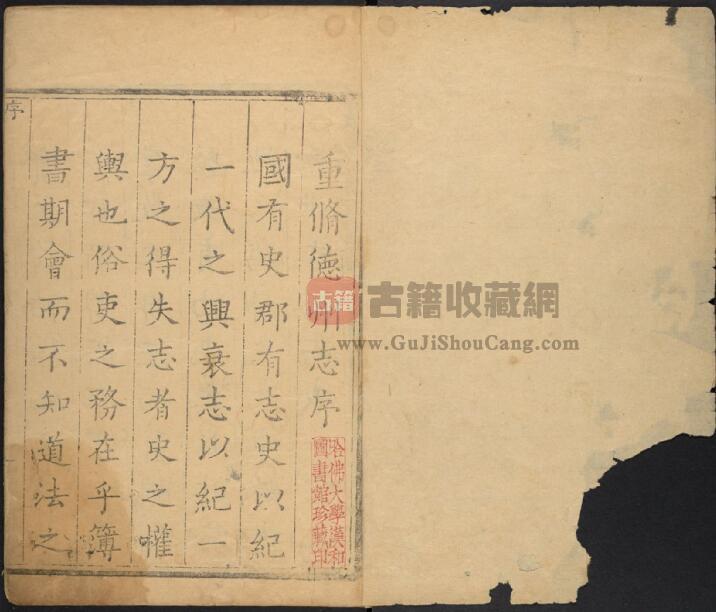 重脩徳州志序
國有史郡有志史以紀
一代之興衰志以紀一
方之得失志者史之權
輿也俗吏之務在乎簿
書期會而不知道法之
序
哈佛大學漢和
圖書館珍藏印
古籍
古籍收藏網
www.GuJiShouCang.com